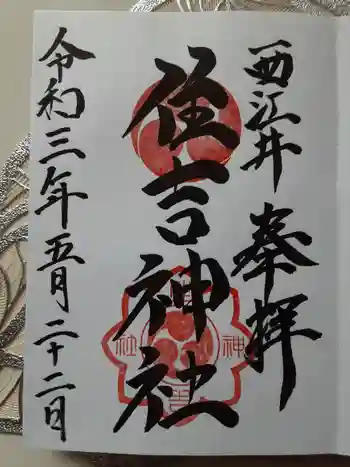 西江井 奉拝
住吉神社
令和三年五月二十二日